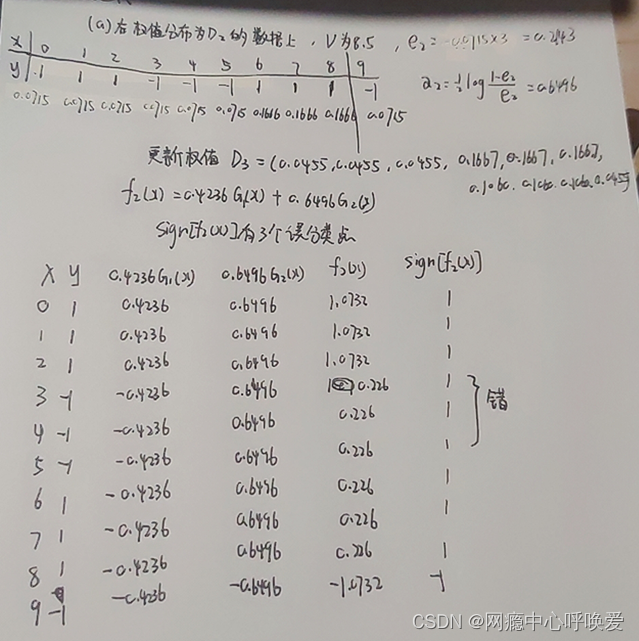 (a) 在权值分布为D₂的数据上, V为8.5, e₂=-0.0715×3 =0.2143
x 0 1 2 3 4 5 6 7 8 9
y 1 1 1 -1 -1 -1 1 1 1 -1
0.0715 0.0715 0.0715 0.0715 0.0715 0.0715 0.1666 0.1666 0.1666 0.0715
a₂=½log (1-e₂)/e₂ =0.6496
更新权值 D₃=(0.0455,0.0455,0.0455, 0.1667,0.1667,0.1667,
0.1060, 0.1060, 0.1060, 0.0455)
f₂(x)=0.4236G₁(x)+0.6496G₂(x)
sign[f₂(x)]有3个误分类点
x y 0.4236G₁(x) 0.6496G₂(x) f₂(x) sign[f₂(x)]
0 1 0.4236 0.6496 1.0732 1
1 1 0.4236 0.6496 1.0732 1
2 1 0.4236 0.6496 1.0732 1
3 -1 -0.4236 0.6496 0.226 1
4 -1 -0.4236 0.6496 0.226 1 错
5 -1 -0.4236 0.6496 0.226 1
6 1 -0.4236 0.6496 0.226 1
7 1 -0.4236 0.6496 0.226 1
8 1 -0.4236 0.6496 0.226 1
9 -1 -0.4236 -0.6496 -1.0732 -1
CSDN @网瘾中心呼唤爱